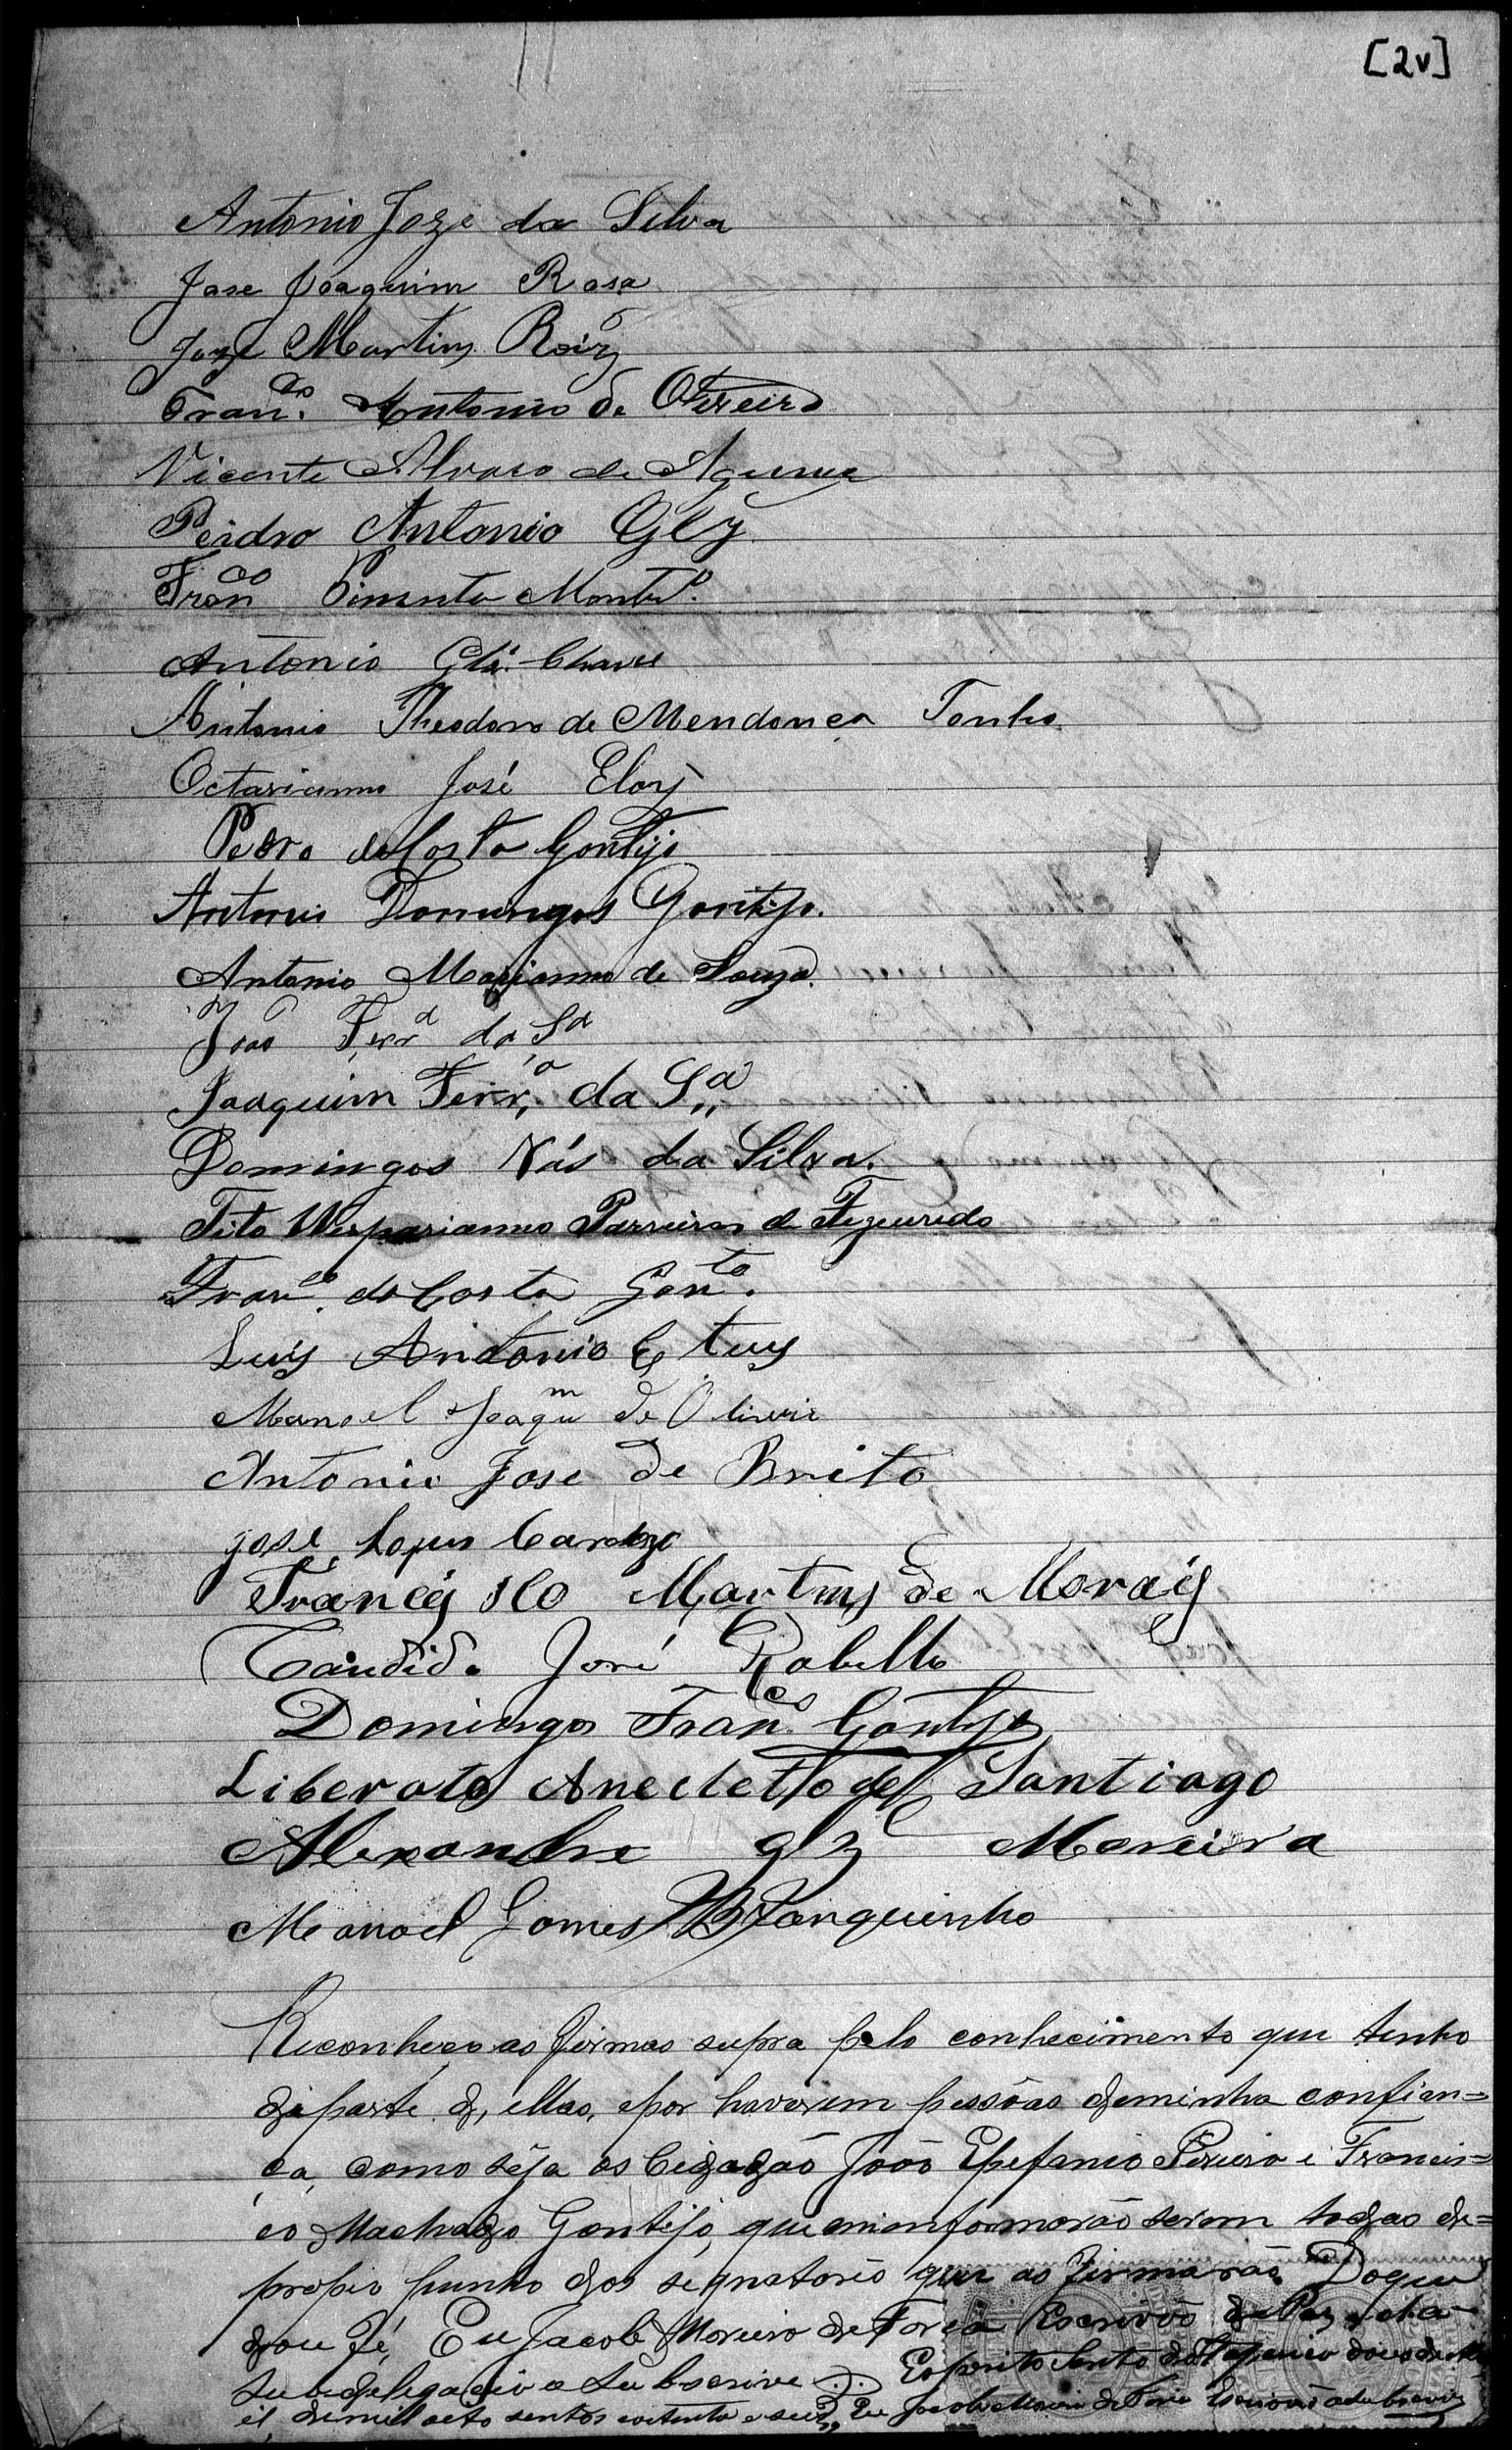 [2v]
Antonio Joze da Silva
Jose Joaquim Rosa
Joze Martins Roiz
Franco. Antonio de Oliveira
Vicente Alvaro de
Peidro Antonio Glz
Franco Pimenta Montro.
Antonio Chaves
Antonio Theodoro de Mendonca
Octavianno José Eloy
Pedro da Costa Gontijo
Antonio Domingos Gontijo.
Antonio Marianno de Souza.
João Ferra da Sa
Joaquim Ferra da Sa
Domingos Vás da Silva.
Tito Parreiras de Figueredo
Franco. da Costa Gonto.
Luis Antonio
Manoel Joaqum de Oliveira
Antonio Jose de Brito
jose Lopes Cardozo
Francisco Martins de Morais
Candido José Rabello
Domingos Franco Gontijo
Liberato Anecletto de Santiago
Alexandre glz Moreira
Manoel Gomes Branquinho
Reconheço as firmas supra pelo conhecimento que tenho
de parte d, ellas, e por haverem pessôas de minha confian=
ça, como sêja os Cidadão João Epefanio Pereira e Francis=
co Machado Gontijo, que me informarão serem todas de=
propio punho dos signatorio que as firmarão. Do que
dou fé, Eu Jacob Moreira de Faria Escrivão de Paz e da
subdelegacia o subscrive Esperito Santo do Itapecirica dous de
de mil oito sentos oitenta e seis, Eu Jacob Moreira de Faria Escrivão o subscrive